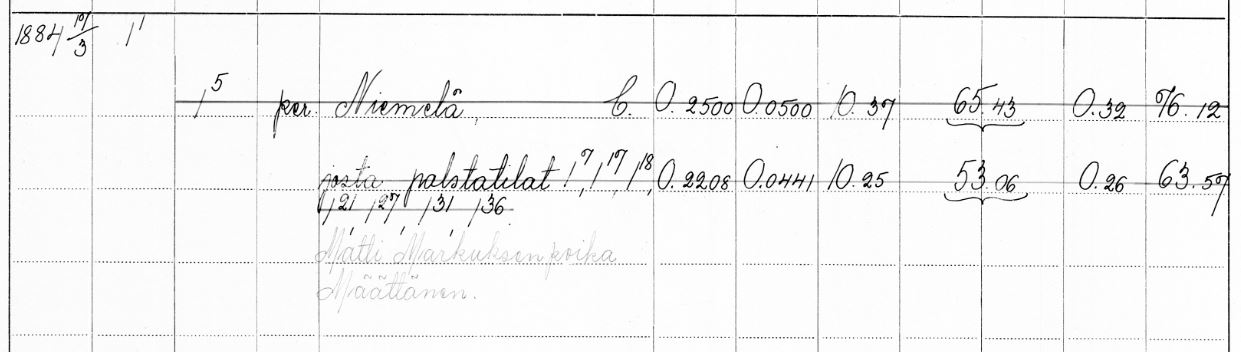 1884 19/3 1¹
1⁵ per. Niemelä, C. 0.2500 0.0500 10.37 65.43 0.32 76.12
josta palstatilat 1⁷, 1¹⁷, 1¹⁸, 0.2208 0.0441 10.25 53.06 0.26 63.57
1²¹, 1²⁷, 1³¹, 1³⁶.
Matti Markuksenpoika
Määttänen.